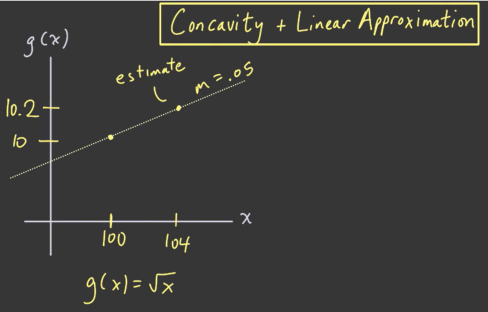 Concavity + Linear Approximation
g(x)
estimate
m = .05
10.2
10
x
100 104
g(x) = √x